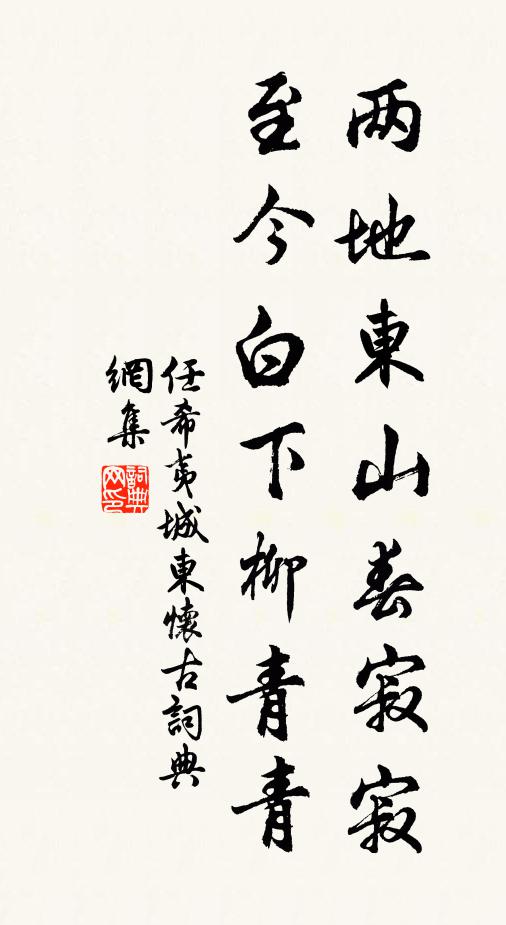 两地東山春寂寂
至今白下柳青青
任希夷城東懷古詞典
網集
詞典網印